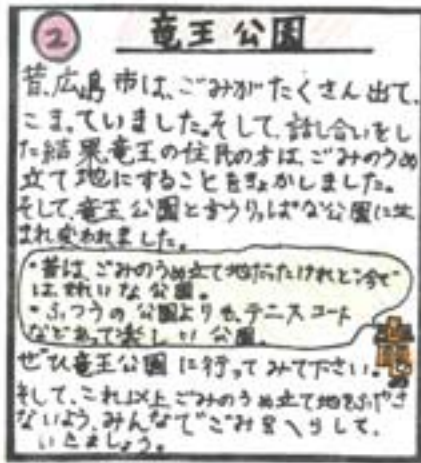 ② 竜王公園
昔、広島市は、ごみがたくさん出て、
こまっていました。そして、話し合いをし
た結果、竜王の住民の方は、ごみのうめ
立て地にすることをきょかしました。
そして、竜王公園と言うりっぱな公園に生
まれ変われました。
・昔は、ごみのうめ立て地だったけれど今で
は、きれいな公園。
・ふつうの公園よりも、テニスコート
などあって楽しい公園。
ぜひ竜王公園に行ってみて下さい。
そして、これ以上ごみのうめ立て地をふやさ
ないよう、みんなでごみをへらして、
いきましょう。